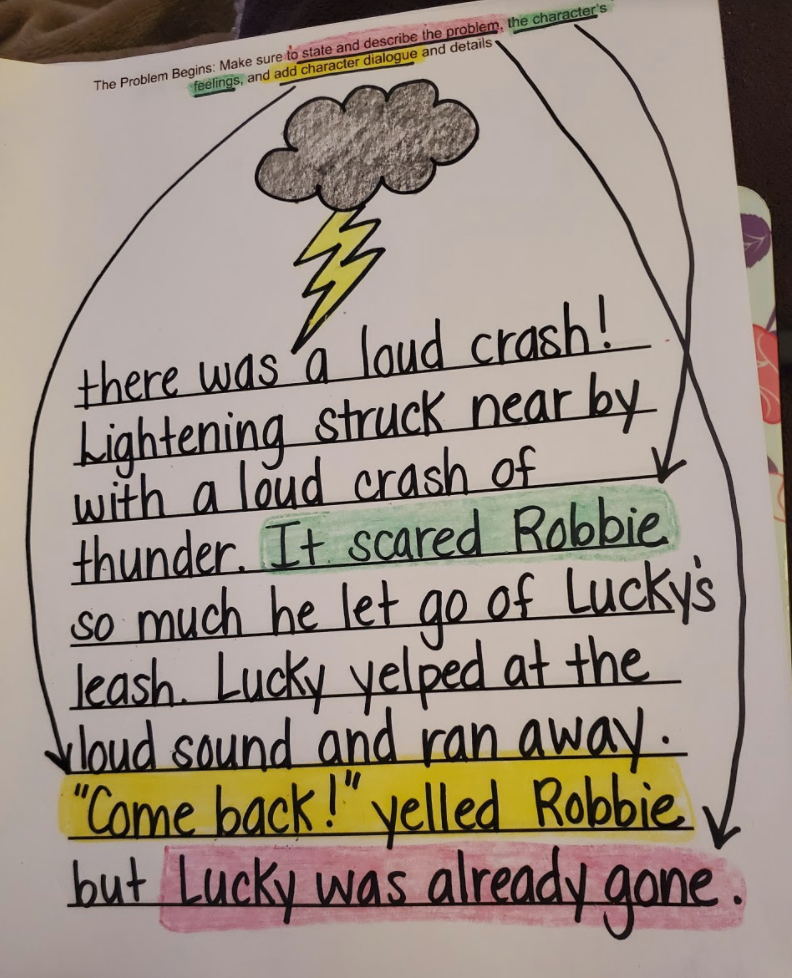 The Problem Begins: Make sure to state and describe the problem, the character's
feelings, and add character dialogue and details
there was a loud crash!
Lightening struck near by
with a loud crash of
thunder. It scared Robbie
so much he let go of Lucky's
leash. Lucky yelped at the
loud sound and ran away.
"Come back!" yelled Robbie
but Lucky was already gone.